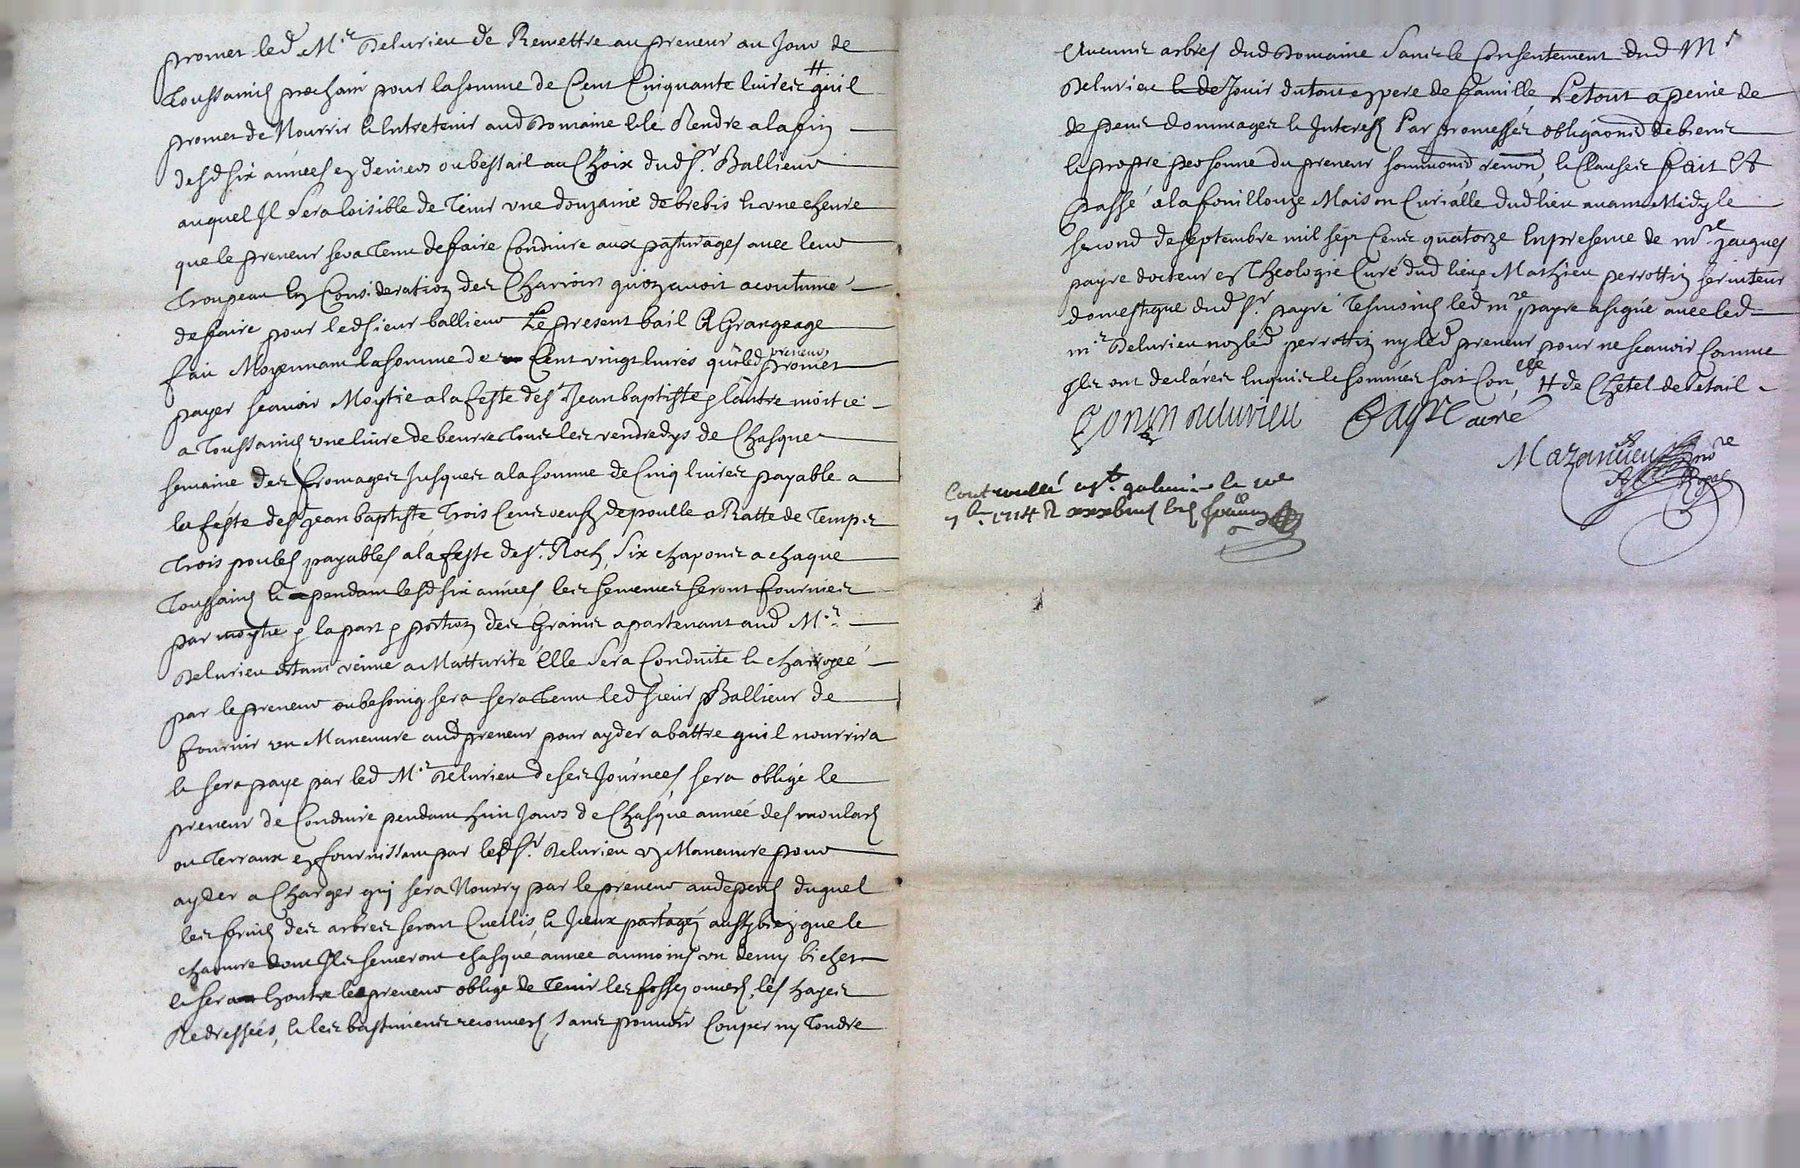 promet led Mr. Delurieu de Remettre au preneur au Jour de
Toussainct prochain pour la somme de Cent Cinquante livres # quil
promet de Nourrir & Entretenir aud Domaine & le Rendre a la fin
desd six années en deniers ou bestail au Choix dud Sr. Ballieur
auquel Il Sera loisible de Tenir une douzaine de brebis & une chevre
que le preneur sera Tenu de faire Conduire aux pasturages avec leur
Troupeau En Consideration des Charrois quon avoit acoutumé
de faire pour led sieur ballieur Le present bail & Grangeage
fait Moyennant la somme de Cent vingt livres que led preneur promet
payer scavoir Moytie a la feste de St Jean baptiste & lautre moitié
a Toussainct une livre de beurre Tous les vendredys de Chasque
semaine des fromages Jusques a la somme de Cinq livres payable a
la feste de St Jean baptiste Trois Cens oeufz de poulle a Ratte de Temps
Trois poules payables a la feste de St. Roch, Six chapons a chaque
Toussainct & pendant lesd six années, les semences seront fournies
par moytie & la part & portion des Grains apartenant aud Mr.
Delurieu étant venue a Matturité Elle Sera Conduite & charroyée
par le preneur ou besoing sera sera Tenu led sieur Ballieur de
fournir un Maneuvre aud preneur pour ayder a battre quil nourrira
& sera payé par led Mr. Delurieu de ses Journées, sera obligé le
preneur de Conduire pendant huit Jours de Chasque année des moulard
ou Terraux en fournissant par led Sr. Delurieu un Maneuvre pour
ayder a Charger qui sera Nourry par le preneur aud depens duquel
les fruicts des arbres seront Cuellis, & Iceux partagés aussy bien que le
chanvre dont Ils semeront chasque année aumoins un demy bichet
& sera outre le preneur obligé de Tenir les fossez ouverts, les hayes
Redressées, & les bastimens recouverts, sans pouvoir Couper ny Tondre
Aucuns arbres dud Domaine Sans le Consentement dud Mr
Delurieu & de Jouir du tout en pere de famille, Le tout a peine de
de peine dommages & Interest Par promesses obligaons de biens
le propre personne du preneur soumons renon, & Clauses fait Et
Passé a la fouillouze Maison Curialle dud lieu avant Midy le
second de septembre mil sept Cens quatorze En presence de mre jacques
payre docteur en Theologie Curé dud lieu & Mathieu perrottin serviteur
domestique dud Sr. payre Tesmoins led mre payre a signé avec led
mr Delurieu non led perrottin ny led preneur pour ne scavoir Comme
Ils ont declarés Enquis & sommés soit Conlle # de Chetel de bétail
Delurieu Payre curé
Mazanieu nore
Royal
Controullé a St. galmier le
7bre 1714 R